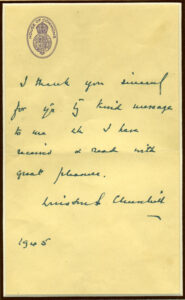 HOUSE OF COMMONS
I thank you
for yr kind message
to me wh I have
received & read with
great pleasure.
Winston S. Churchill
1945